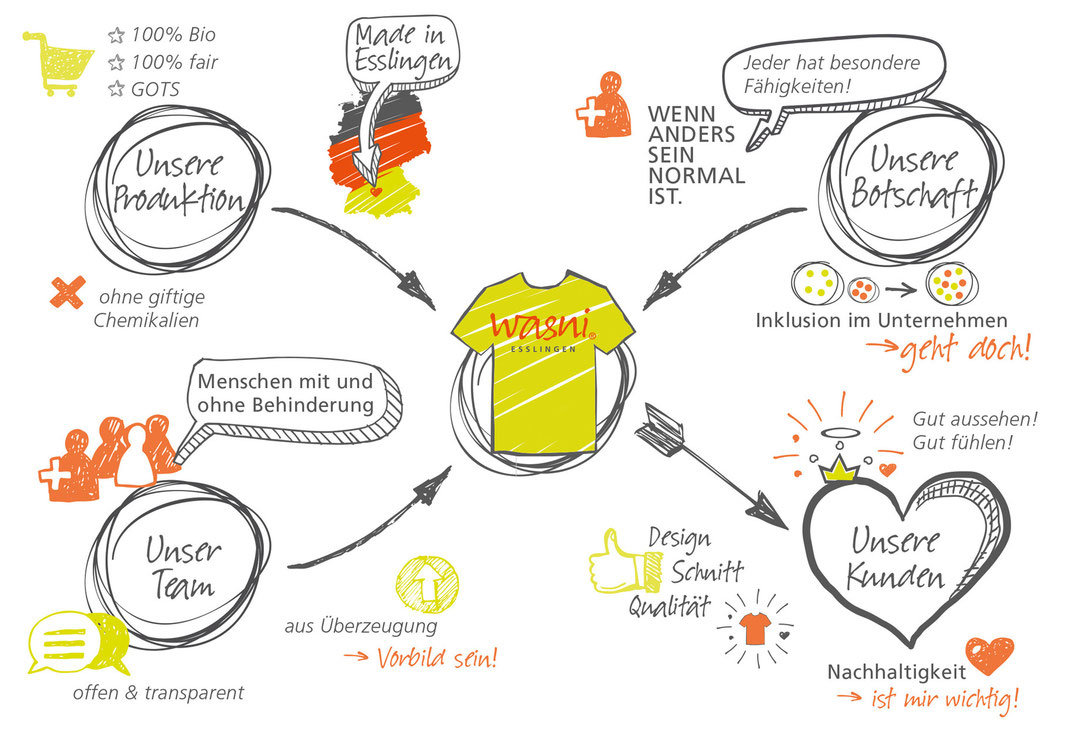 100% Bio
100% fair
GOTS
Unsere
Produktion
ohne giftige
Chemikalien
Made in
Esslingen
WENN
ANDERS
SEIN
NORMAL
IST.
Jeder hat besondere
Fähigkeiten!
Unsere
Botschaft
Inklusion im Unternehmen
geht doch!
wasni®
ESSLINGEN
Menschen mit und
ohne Behinderung
Unser
Team
offen & transparent
aus Überzeugung
Vorbild sein!
Design
Schnitt
Qualität
Gut aussehen!
Gut fühlen!
Unsere
Kunden
Nachhaltigkeit
ist mir wichtig!